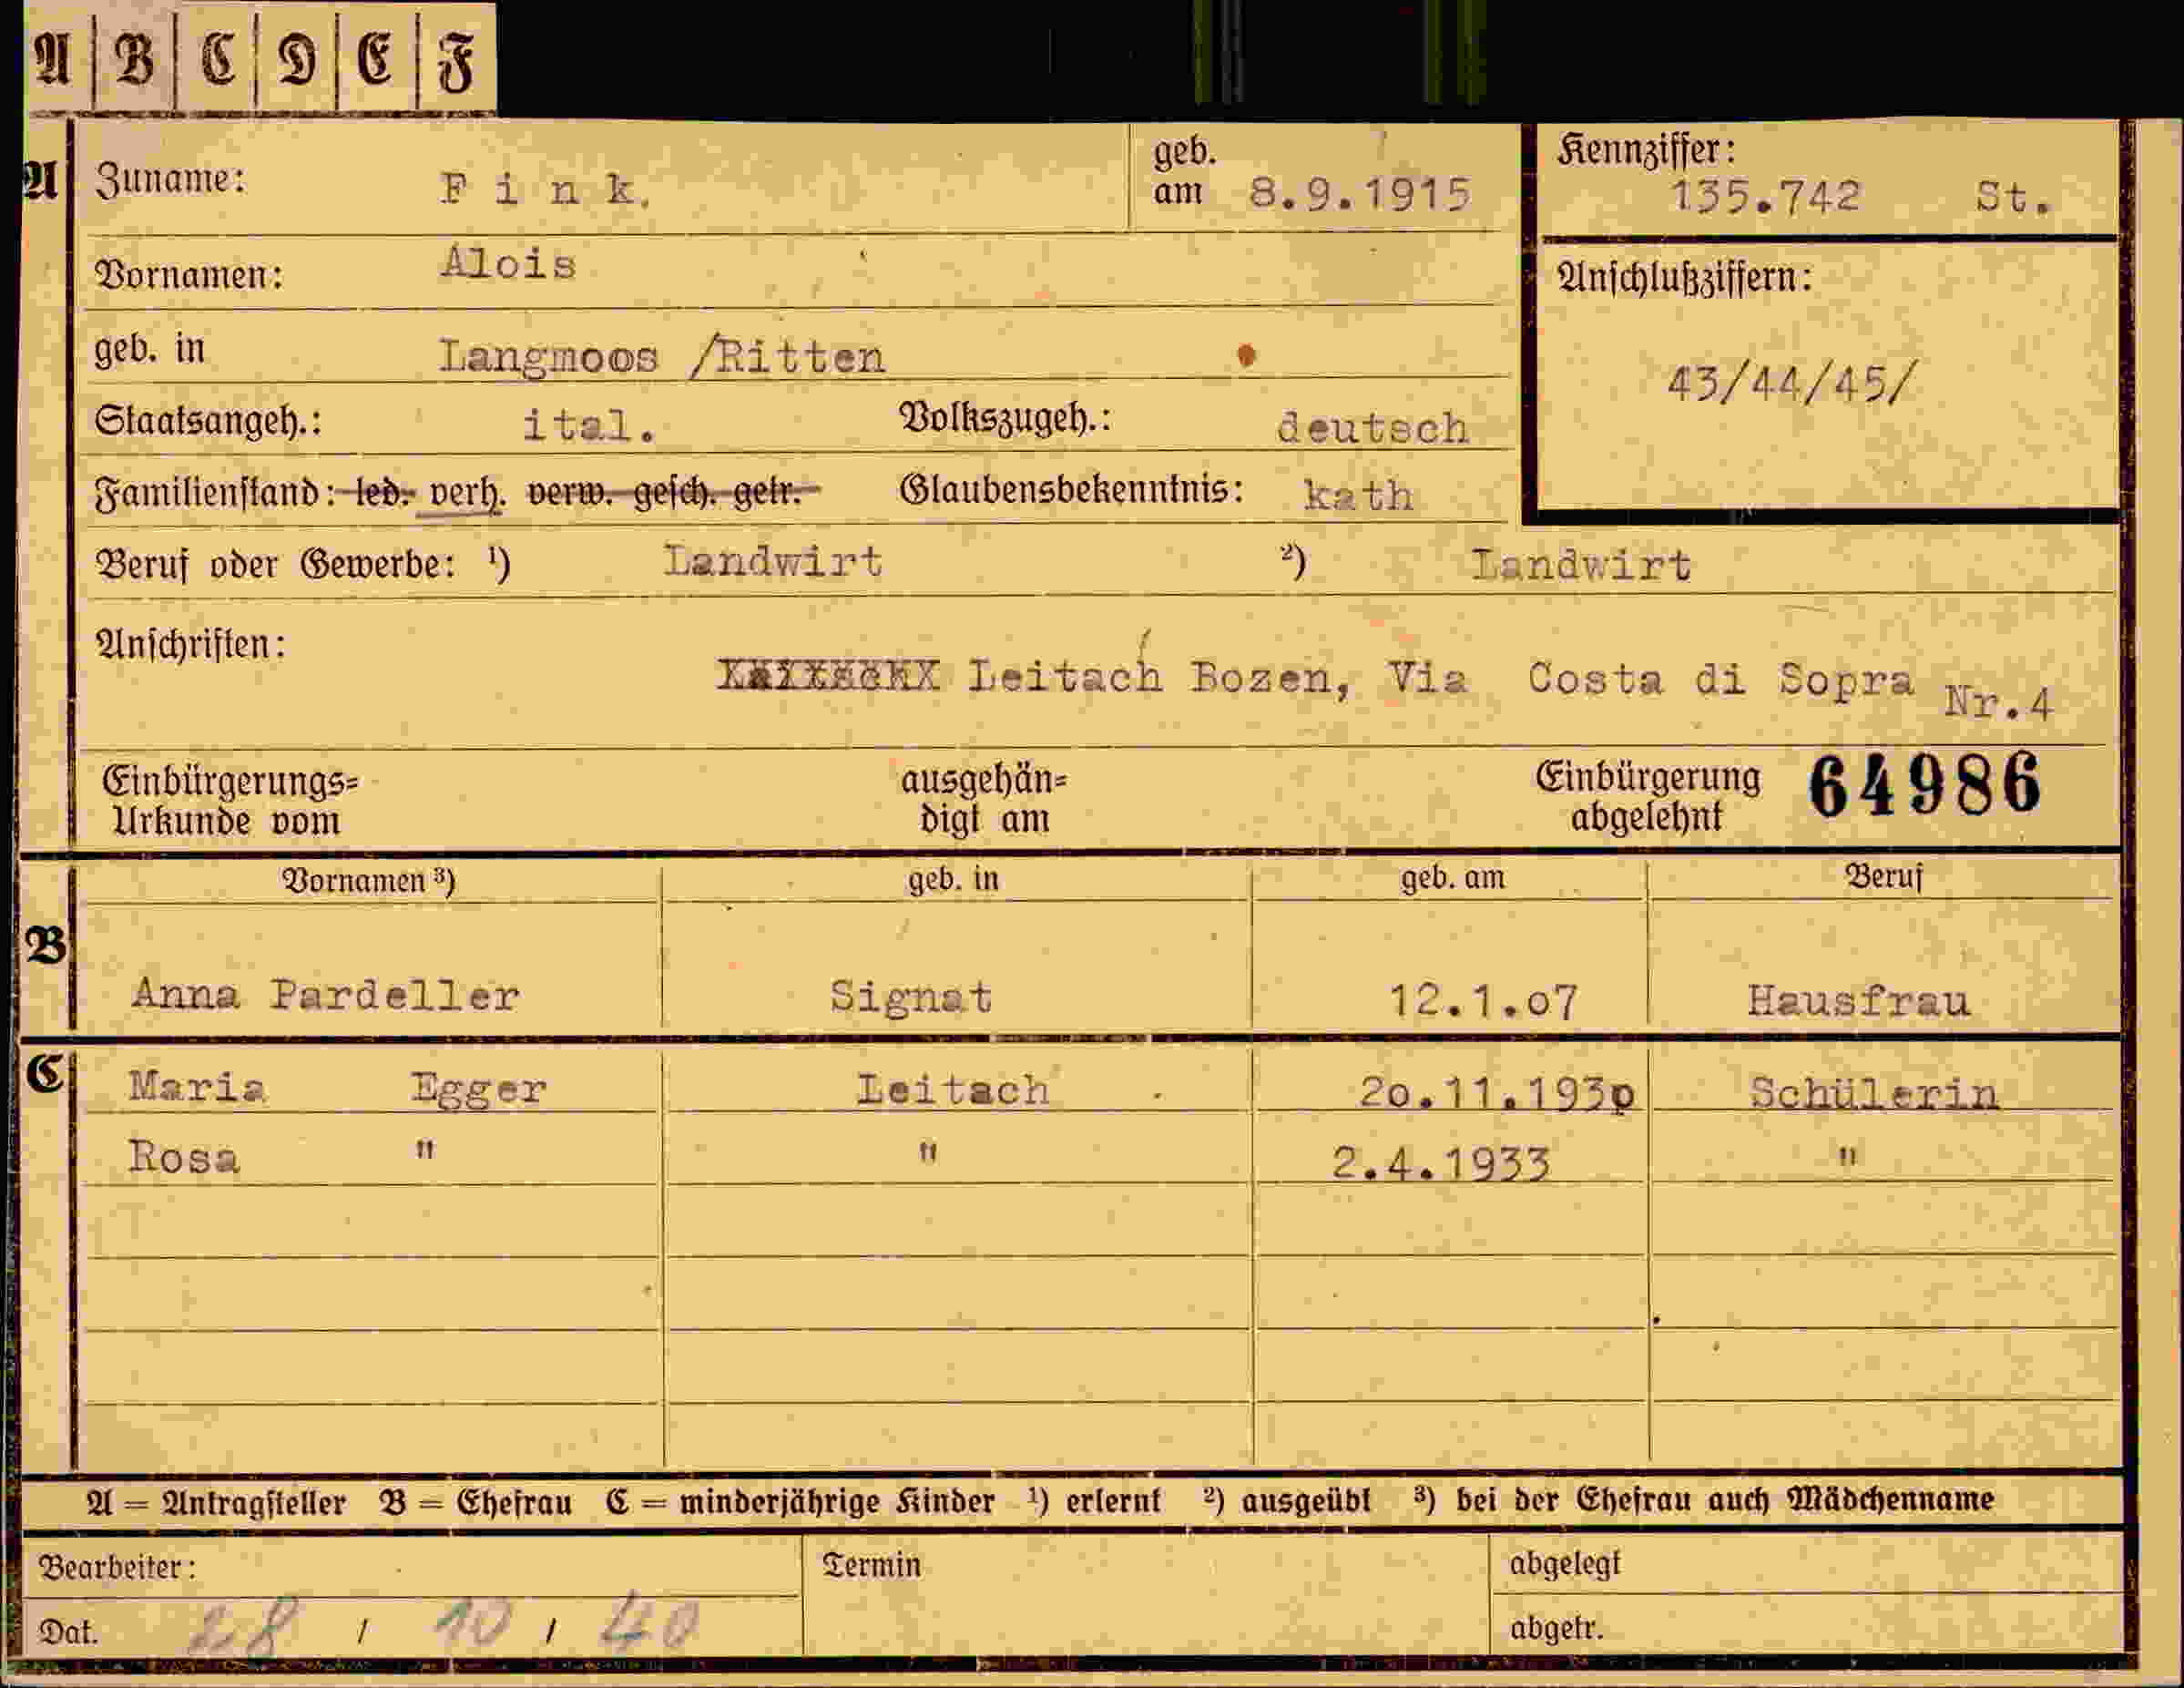 A B C D E F
A Zuname: Fink. geb. am 8.9.1915 Kennziffer: 135.742 St.
Vornamen: Alois
Anschlußziffern:
geb. in Langmoos /Ritten
43/44/45/
Staatsangeh.: ital. Volkszugeh.: deutsch
Familienstand: led. verh. verw. gesch. getr. Glaubensbekenntnis: kath
Beruf oder Gewerbe: ¹) Landwirt ²) Landwirt
Anschriften:
Leitach Bozen, Via Costa di Sopra Nr.4
Einbürgerungs= ausgehän= Einbürgerung 64986
Urkunde vom digt am abgelehnt
Vornamen ³) geb. in geb. am Beruf
B
Anna Pardeller Signat 12.1.o7 Hausfrau
C Maria Egger Leitach 2o.11.193o Schülerin
Rosa " " 2.4.1933 "
A = Antragsteller B = Ehefrau C = minderjährige Kinder ¹) erlernt ²) ausgeübt ³) bei der Ehefrau auch Mädchenname
Bearbeiter: Termin abgelegt
Dat. 28 / 10 / 40 abgetr.